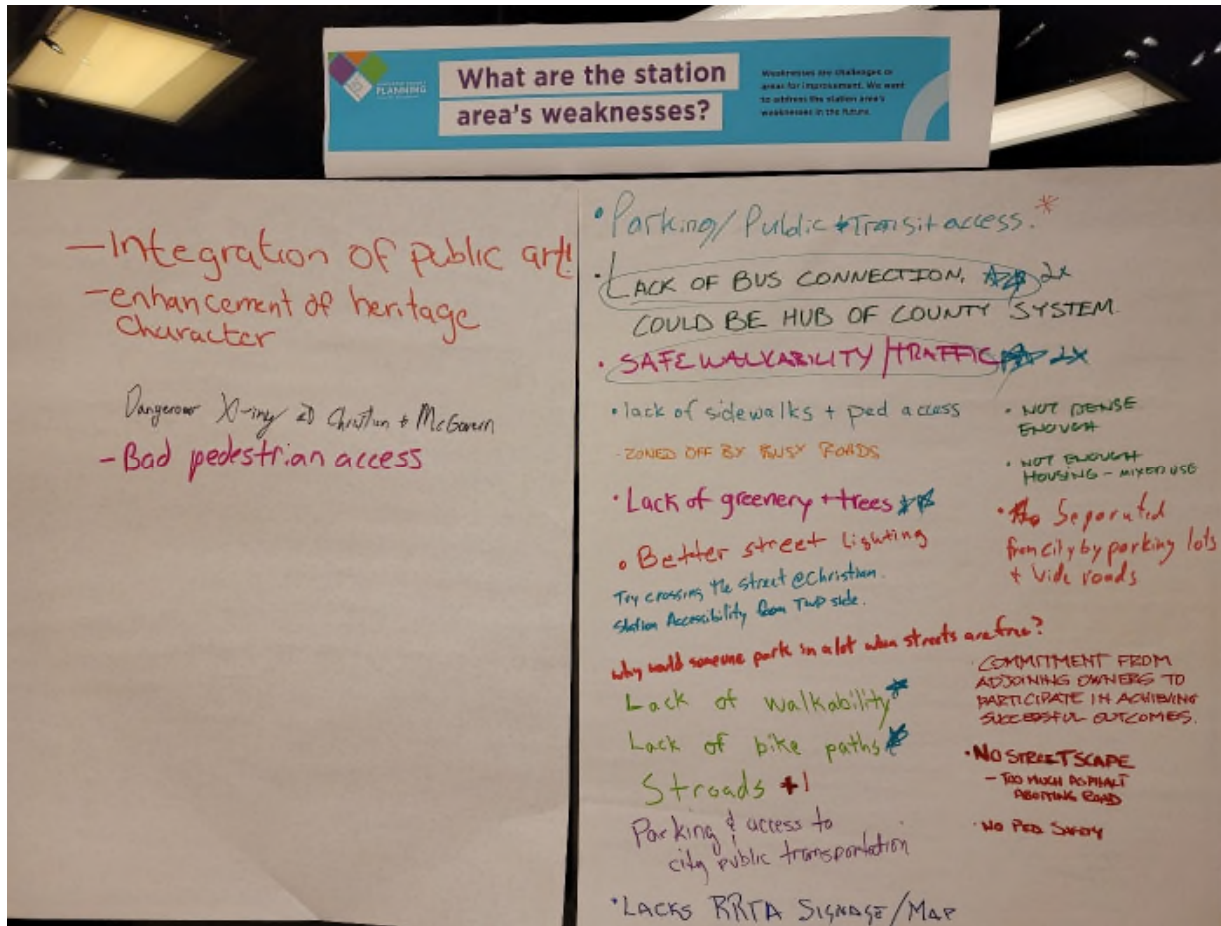 PLANNING
What are the station
area's weaknesses?
Weaknesses are challenges or
areas for improvement. We want
to address the station area's
weaknesses in the future.
- Integration of public art!
- enhancement of heritage
character
Dangerous X-ing @ Christian + McGovern
- Bad pedestrian access
• Parking/Public Transit access. *
• LACK OF BUS CONNECTION. 2x
COULD BE HUB OF COUNTY SYSTEM.
• SAFE WALKABILITY/TRAFFIC 2x
• lack of sidewalks + ped access
- ZONED OFF BY BUSY ROADS
• Lack of greenery + trees
• Better street lighting
Try crossing the street @ Christian.
Station Accessibility from TWP side.
why would someone park in a lot when streets are free?
Lack of walkability
Lack of bike paths
Stroads +1
Parking & access to
city public transportation
• LACKS RRTA SIGNAGE/MAP
• NOT DENSE
ENOUGH
• NOT ENOUGH
HOUSING - MIXED USE
• Separated
from city by parking lots
+ wide roads
COMMITMENT FROM
ADJOINING OWNERS TO
PARTICIPATE IN ACHIEVING
SUCCESSFUL OUTCOMES.
• NO STREETSCAPE
- TOO MUCH ASPHALT
ABUTTING ROAD
• NO PED SAFETY